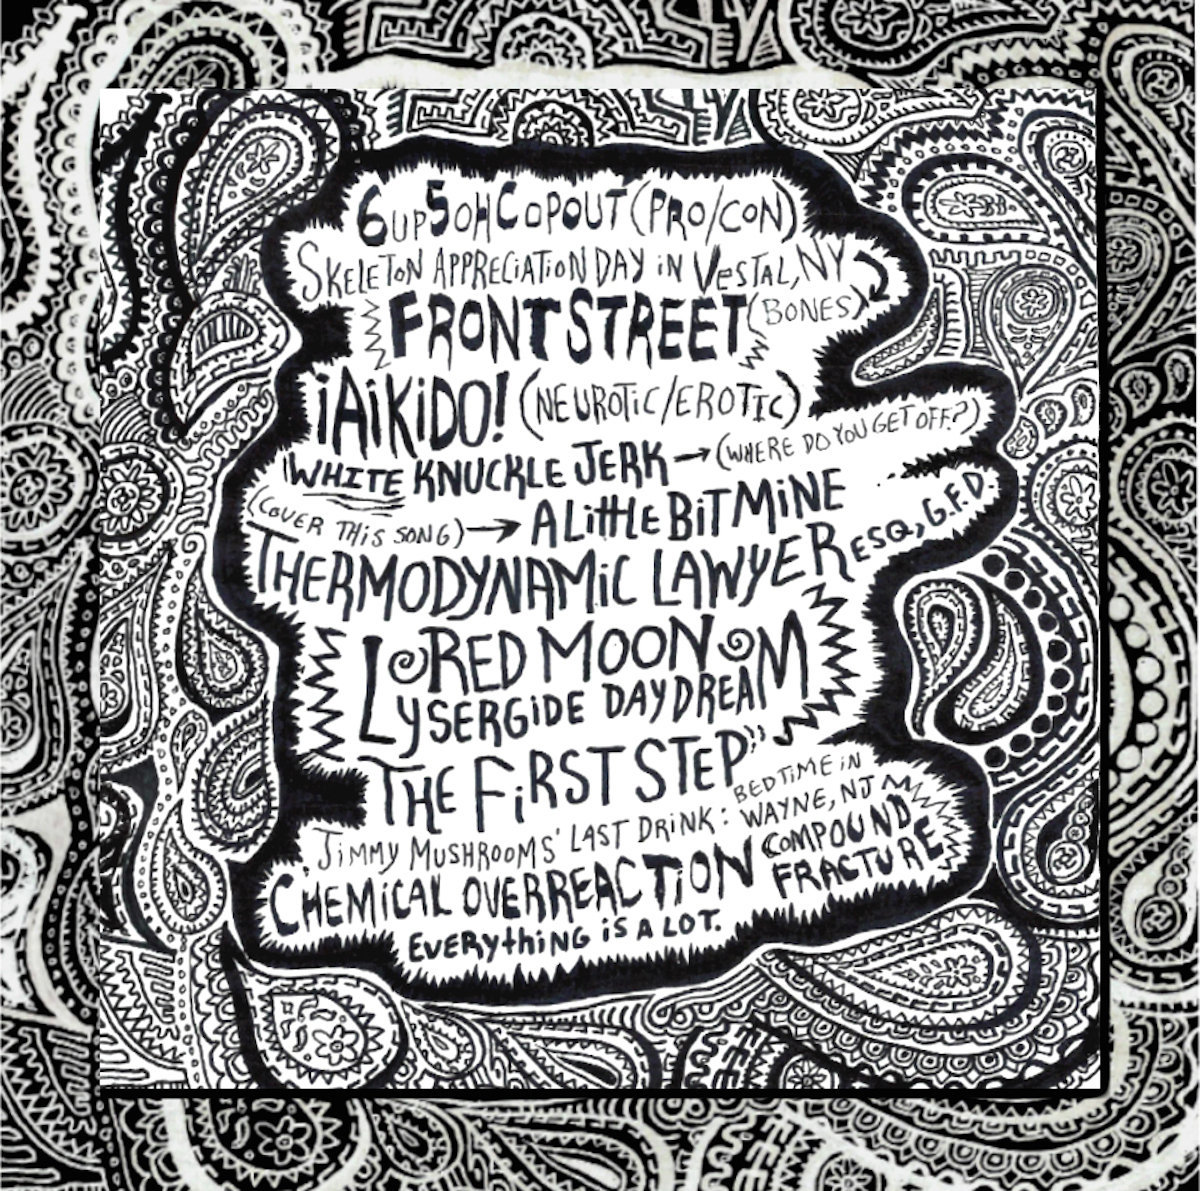 6UP 5OH COPOUT (PRO/CON)
SKELETON APPRECIATION DAY IN VESTAL, NY
(BONES)
FRONT STREET
¡AiKiDO! (NEUROTiC/EROTIC)
WHITE KNUCKLE JERK → (WHERE DO YOU GET OFF?)
(COVER THiS SONG) → A LittLE BiT MiNE
THERMODYNAMiC LAWYER ESQ, G.F.D.
RED MOON
LYSERGiDE DAYDREAM
THE FiRST STEP"
JiMMY MUSHROOMS' LAST DRiNK: BEDTiME iN WAYNE, NJ
CHEMiCAL OVERREACTiON COMPOUND FRACTURE
EVERYthiNG iS A LOT.